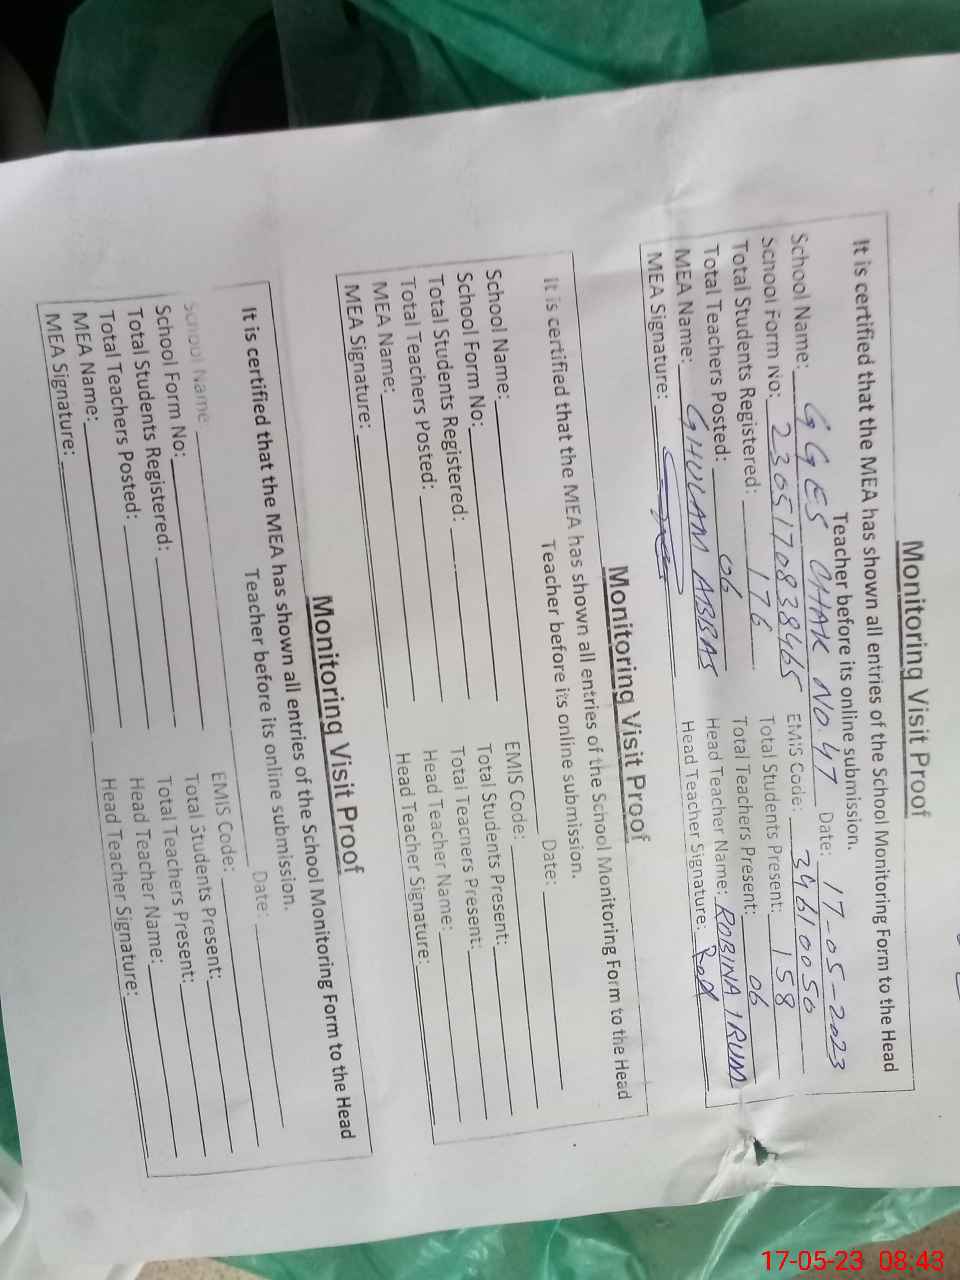 Monitoring Visit Proof
It is certified that the MEA has shown all entries of the School Monitoring Form to the Head
Teacher before its online submission.
School Name: GGES CHAK NO.47 Date: 17-05-2023
School Form No: 2305170838465 EMIS Code: 39610050
Total Students Registered: 176 Total Students Present: 158
Total Teachers Posted: 06 Total Teachers Present: 06
MEA Name: GHULAM ABBAS Head Teacher Name: ROBINA IRUM
MEA Signature: Head Teacher Signature:
Monitoring Visit Proof
It is certified that the MEA has shown all entries of the School Monitoring Form to the Head
Teacher before its online submission.
School Name: Date:
School Form No: EMIS Code:
Total Students Registered: Total Students Present:
Total Teachers Posted: Total Teachers Present:
MEA Name: Head Teacher Name:
MEA Signature: Head Teacher Signature:
Monitoring Visit Proof
It is certified that the MEA has shown all entries of the School Monitoring Form to the Head
Teacher before its online submission.
School Name: Date:
School Form No: EMIS Code:
Total Students Registered: Total Students Present:
Total Teachers Posted: Total Teachers Present:
MEA Name: Head Teacher Name:
MEA Signature: Head Teacher Signature:
17-05-23 08:43